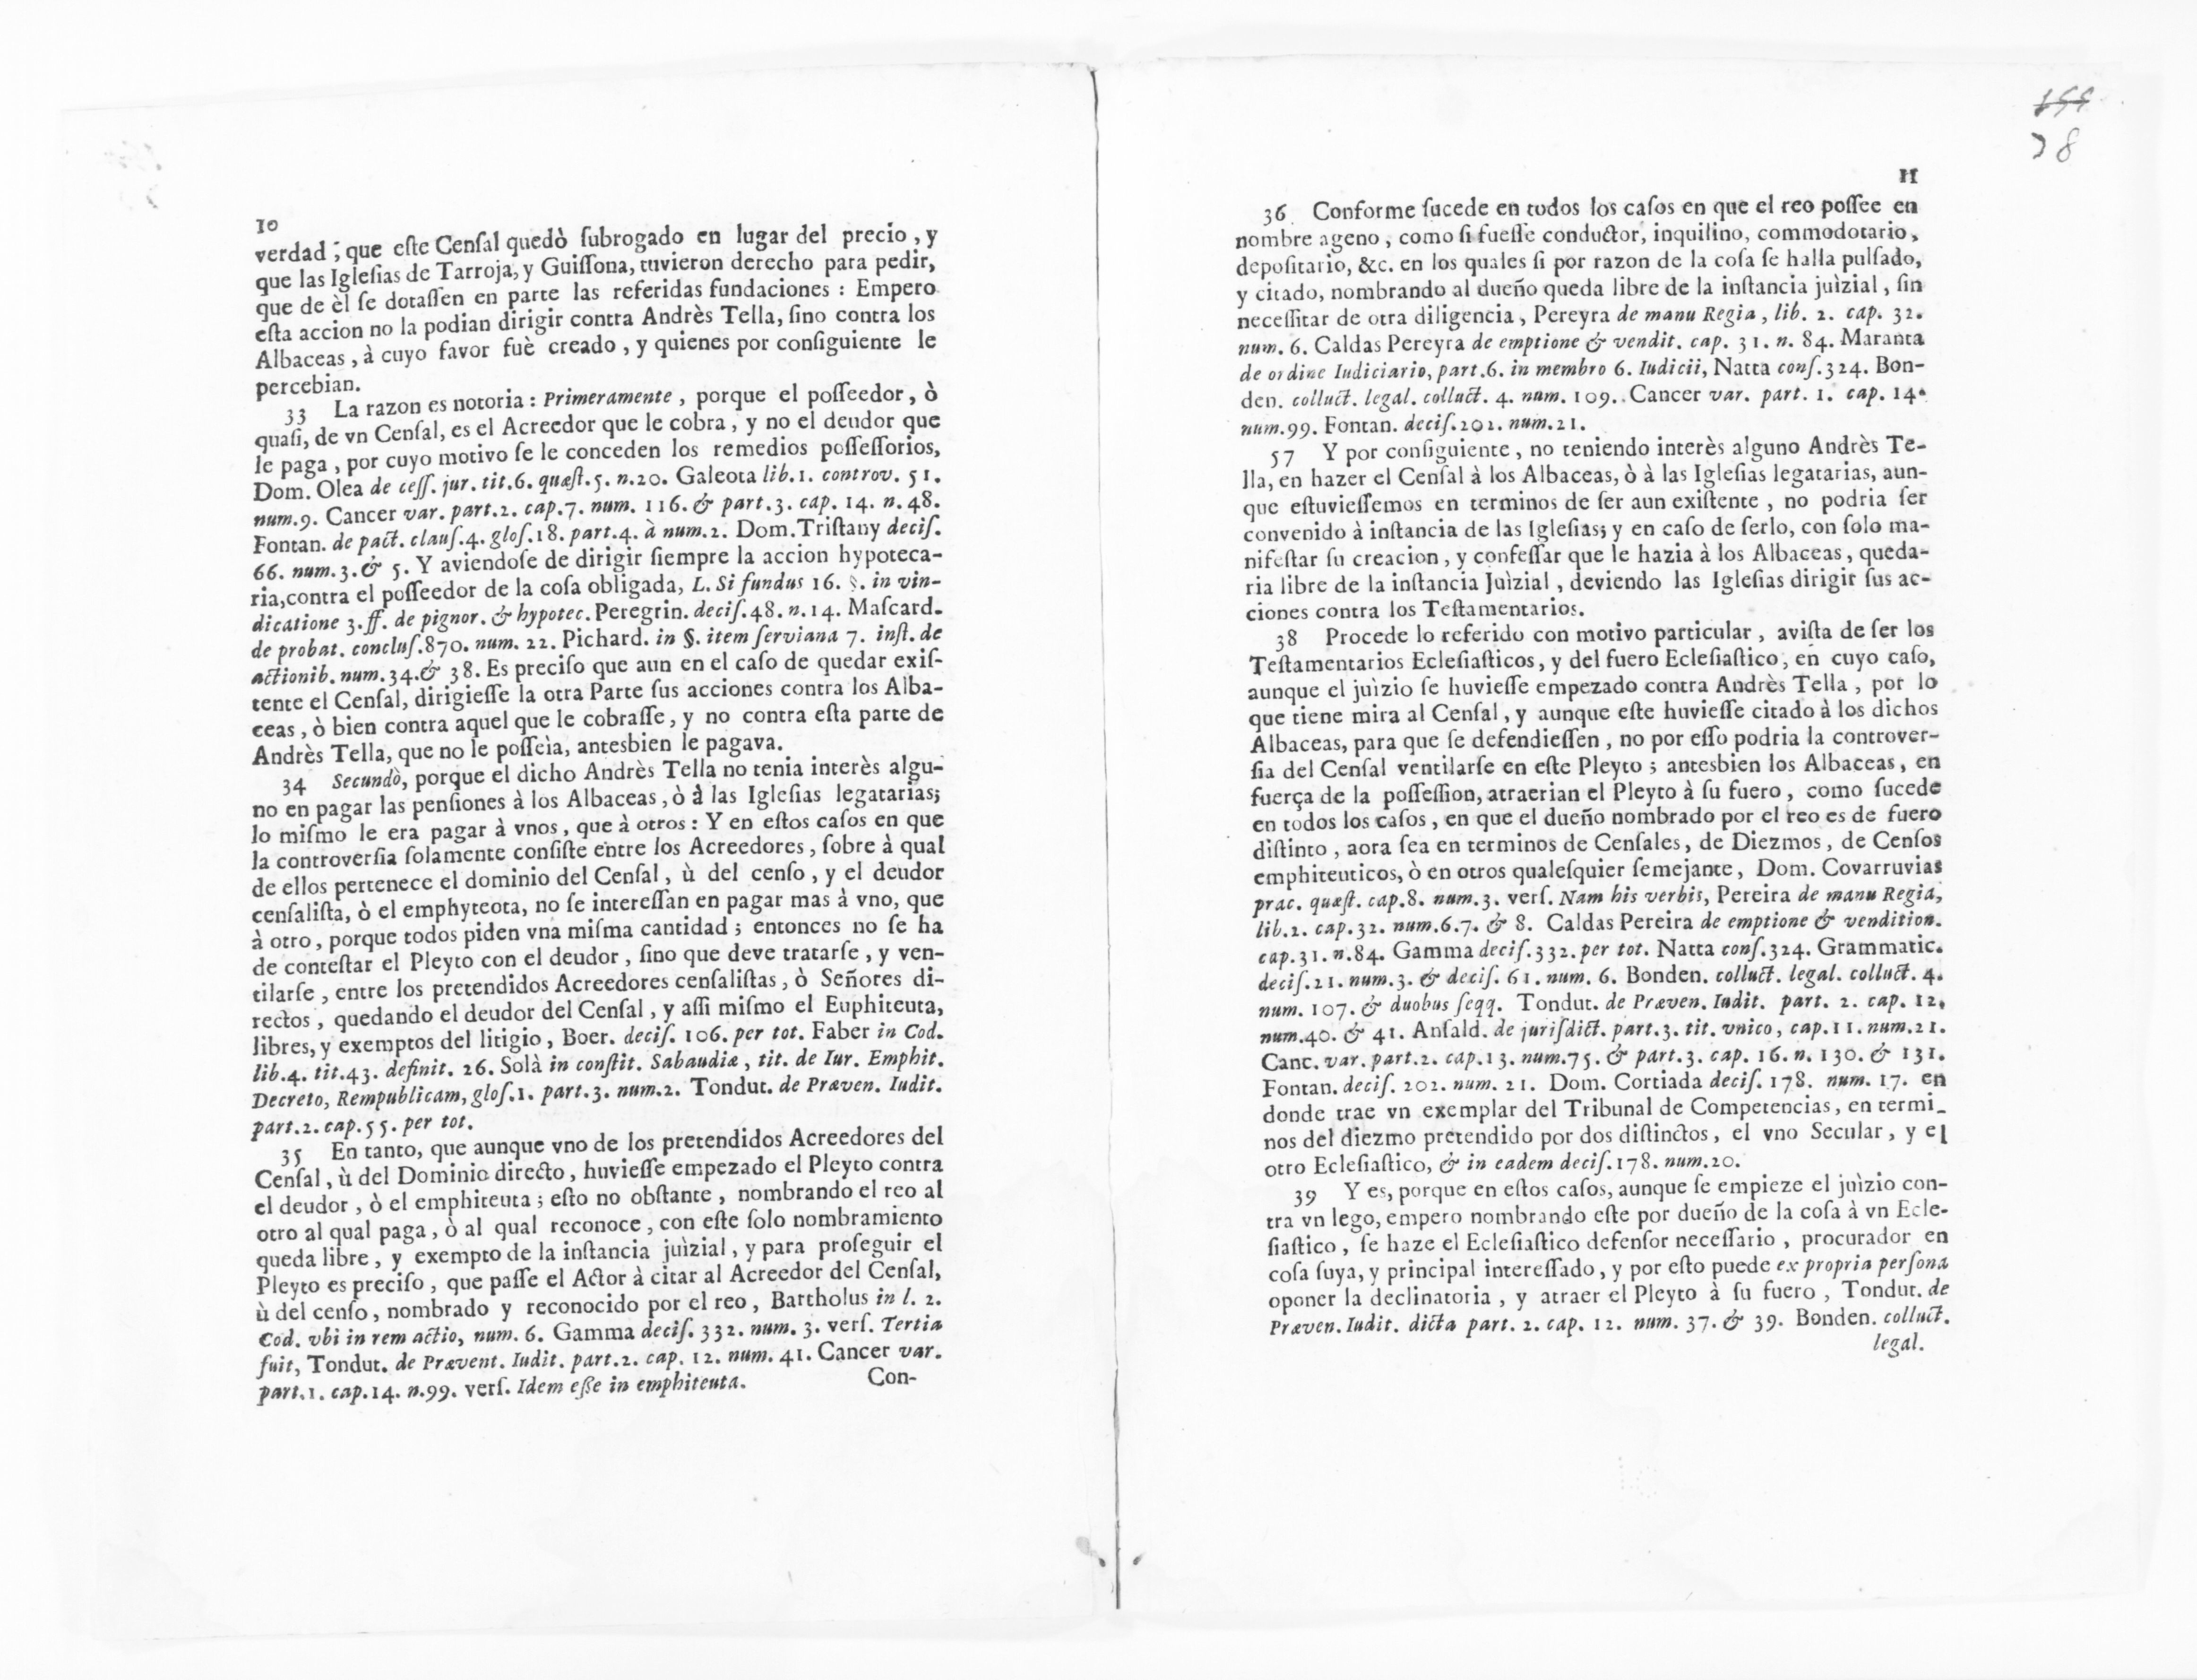 10
verdad; que eſte Cenſal quedò ſubrogado en lugar del precio, y
que las Igleſias de Tarroja, y Guiſſona, tuvieron derecho para pedir,
que de èl ſe dotaſſen en parte las referidas fundaciones: Empero
eſta accion no la podian dirigir contra Andrès Tella, ſino contra los
Albaceas, à cuyo favor fuè creado, y quienes por conſiguiente le
percebian.
33 La razon es notoria: Primeramente, porque el poſſeedor, ò
quaſi, de vn Cenſal, es el Acreedor que le cobra, y no el deudor que
le paga, por cuyo motivo ſe le conceden los remedios poſſeſſorios,
Dom. Olea de ceſſ. jur. tit.6. quæſt.5. n.20. Galeota lib.1. controv. 51.
num.9. Cancer var. part.2. cap.7. num. 116. & part.3. cap. 14. n. 48.
Fontan. de pact. clauſ.4. gloſ.18. part.4. à num.2. Dom. Triſtany deciſ.
66. num.3. & 5. Y aviendoſe de dirigir ſiempre la accion hypoteca-
ria, contra el poſſeedor de la coſa obligada, L. Si fundus 16. §. in vin-
dicatione 3. ff. de pignor. & hypotec. Peregrin. deciſ.48. n.14. Maſcard.
de probat. concluſ.870. num. 22. Pichard. in §. item ſerviana 7. inſt. de
actionib. num.34. & 38. Es preciſo que aun en el caſo de quedar exiſ-
tente el Cenſal, dirigieſſe la otra Parte ſus acciones contra los Alba-
ceas, ò bien contra aquel que le cobraſſe, y no contra eſta parte de
Andrès Tella, que no le poſſeìa, antesbien le pagava.
34 Secundò, porque el dicho Andrès Tella no tenia interès algu-
no en pagar las penſiones à los Albaceas, ò à las Igleſias legatarias;
lo miſmo le era pagar à vnos, que à otros: Y en eſtos caſos en que
la controverſia ſolamente conſiſte entre los Acreedores, ſobre à qual
de ellos pertenece el dominio del Cenſal, ù del cenſo, y el deudor
cenſaliſta, ò el emphyteota, no ſe intereſſan en pagar mas à vno, que
à otro, porque todos piden vna miſma cantidad; entonces no ſe ha
de conteſtar el Pleyto con el deudor, ſino que deve tratarſe, y ven-
tilarſe, entre los pretendidos Acreedores cenſaliſtas, ò Señores di-
rectos, quedando el deudor del Cenſal, y aſſi miſmo el Euphiteuta,
libres, y exemptos del litigio, Boer. deciſ. 106. per tot. Faber in Cod.
lib.4. tit.43. definit. 26. Solà in conſtit. Sabaudiæ, tit. de Iur. Emphit.
Decreto, Rempublicam, gloſ.1. part.3. num.2. Tondut. de Præven. Iudit.
part.2. cap.55. per tot.
35 En tanto, que aunque vno de los pretendidos Acreedores del
Cenſal, ù del Dominio directo, huvieſſe empezado el Pleyto contra
el deudor, ò el emphiteuta; eſto no obſtante, nombrando el reo al
otro al qual paga, ò al qual reconoce, con eſte ſolo nombramiento
queda libre, y exempto de la inſtancia juìzial, y para proſeguir el
Pleyto es preciſo, que paſſe el Actor à citar al Acreedor del Cenſal,
ù del cenſo, nombrado y reconocido por el reo, Bartholus in l. 2.
Cod. vbi in rem actio, num. 6. Gamma deciſ. 332. num. 3. verſ. Tertia
fuit, Tondut. de Prævent. Iudit. part.2. cap. 12. num. 41. Cancer var.
part.1. cap.14. n.99. verſ. Idem eße in emphiteuta.
Con-
199
38
11
36 Conforme ſucede en todos los caſos en que el reo poſſee en
nombre ageno, como ſi fueſſe conductor, inquilino, commodotario,
depoſitario, &c. en los quales ſi por razon de la coſa ſe halla pulſado,
y citado, nombrando al dueño queda libre de la inſtancia juìzial, ſin
neceſſitar de otra diligencia, Pereyra de manu Regia, lib. 2. cap. 32.
num. 6. Caldas Pereyra de emptione & vendit. cap. 31. n. 84. Maranta
de ordine Iudiciario, part.6. in membro 6. Iudicii, Natta conſ.324. Bon-
den. colluct. legal. colluct. 4. num. 109. Cancer var. part. 1. cap. 14.
num.99. Fontan. deciſ.202. num.21.
57 Y por conſiguiente, no teniendo interès alguno Andrès Te-
lla, en hazer el Cenſal à los Albaceas, ò à las Igleſias legatarias, aun-
que eſtuvieſſemos en terminos de ſer aun exiſtente, no podria ſer
convenido à inſtancia de las Igleſias; y en caſo de ſerlo, con ſolo ma-
nifeſtar ſu creacion, y confeſſar que le hazia à los Albaceas, queda-
ria libre de la inſtancia Juìzial, deviendo las Igleſias dirigir ſus ac-
ciones contra los Teſtamentarios.
38 Procede lo referido con motivo particular, aviſta de ſer los
Teſtamentarios Ecleſiaſticos, y del fuero Ecleſiaſtico, en cuyo caſo,
aunque el juìzio ſe huvieſſe empezado contra Andrès Tella, por lo
que tiene mira al Cenſal, y aunque eſte huvieſſe citado à los dichos
Albaceas, para que ſe defendieſſen, no por eſſo podria la controver-
ſia del Cenſal ventilarſe en eſte Pleyto; antesbien los Albaceas, en
fuerça de la poſſeſſion, atraerian el Pleyto à ſu fuero, como ſucede
en todos los caſos, en que el dueño nombrado por el reo es de fuero
diſtinto, aora ſea en terminos de Cenſales, de Diezmos, de Cenſos
emphiteuticos, ò en otros qualeſquier ſemejante, Dom. Covarruvias
prac. quæſt. cap.8. num.3. verſ. Nam his verbis, Pereira de manu Regia,
lib.2. cap.32. num.6.7. & 8. Caldas Pereira de emptione & vendition.
cap.31. n.84. Gamma deciſ.332. per tot. Natta conſ.324. Grammatic.
deciſ.21. num.3. & deciſ. 61. num. 6. Bonden. colluct. legal. colluct. 4.
num. 107. & duobus ſeqq. Tondut. de Præven. Iudit. part. 2. cap. 12.
num.40. & 41. Anſald. de juriſdict. part.3. tit. vnico, cap.11. num.21.
Canc. var. part.2. cap.13. num.75. & part.3. cap. 16. n. 130. & 131.
Fontan. deciſ. 202. num. 21. Dom. Cortiada deciſ. 178. num. 17. en
donde trae vn exemplar del Tribunal de Competencias, en termi-
nos del diezmo pretendido por dos diſtinctos, el vno Secular, y el
otro Ecleſiaſtico, & in eadem deciſ.178. num.20.
39 Y es, porque en eſtos caſos, aunque ſe empieze el juìzio con-
tra vn lego, empero nombrando eſte por dueño de la coſa à vn Ecle-
ſiaſtico, ſe haze el Ecleſiaſtico defenſor neceſſario, procurador en
coſa ſuya, y principal intereſſado, y por eſto puede ex propria perſona
oponer la declinatoria, y atraer el Pleyto à ſu fuero, Tondut. de
Præven. Iudit. dicta part. 2. cap. 12. num. 37. & 39. Bonden. colluct.
legal.